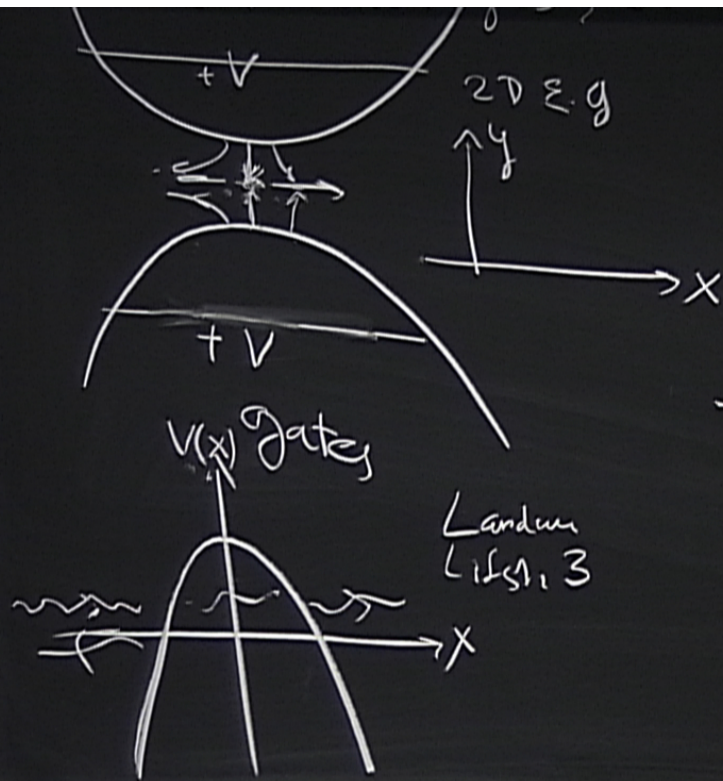 + V
2D E.g
y
X
+ V
V(x) gates
Landau
Lifsh. 3
X